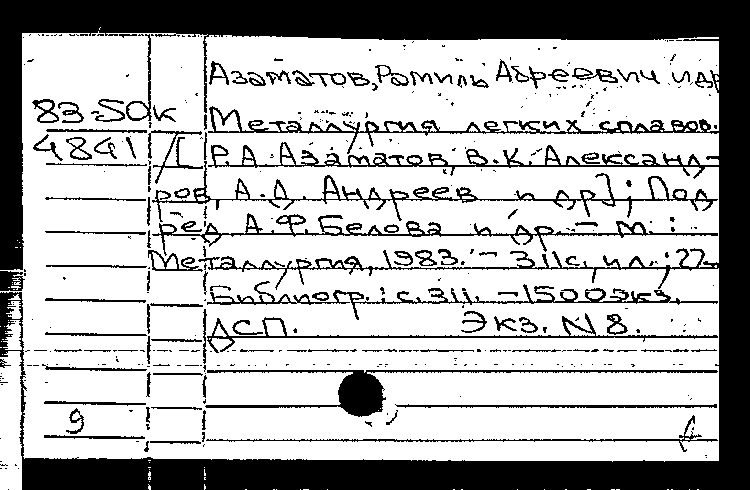 Азаматов, Рамиль Абреевич и др
83-50к Металлургия легких сплавов.
4841 / [Р.А. Азаматов, В.К. Александ-
ров, А.Д. Андреев и др]; Под
ред. А.Ф. Белова и др. - М.:
Металлургия, 1983. - 311с., ил.; 22-
Библиогр.: с.311. - 1500экз.
ДСП. Экз. N 8.
9